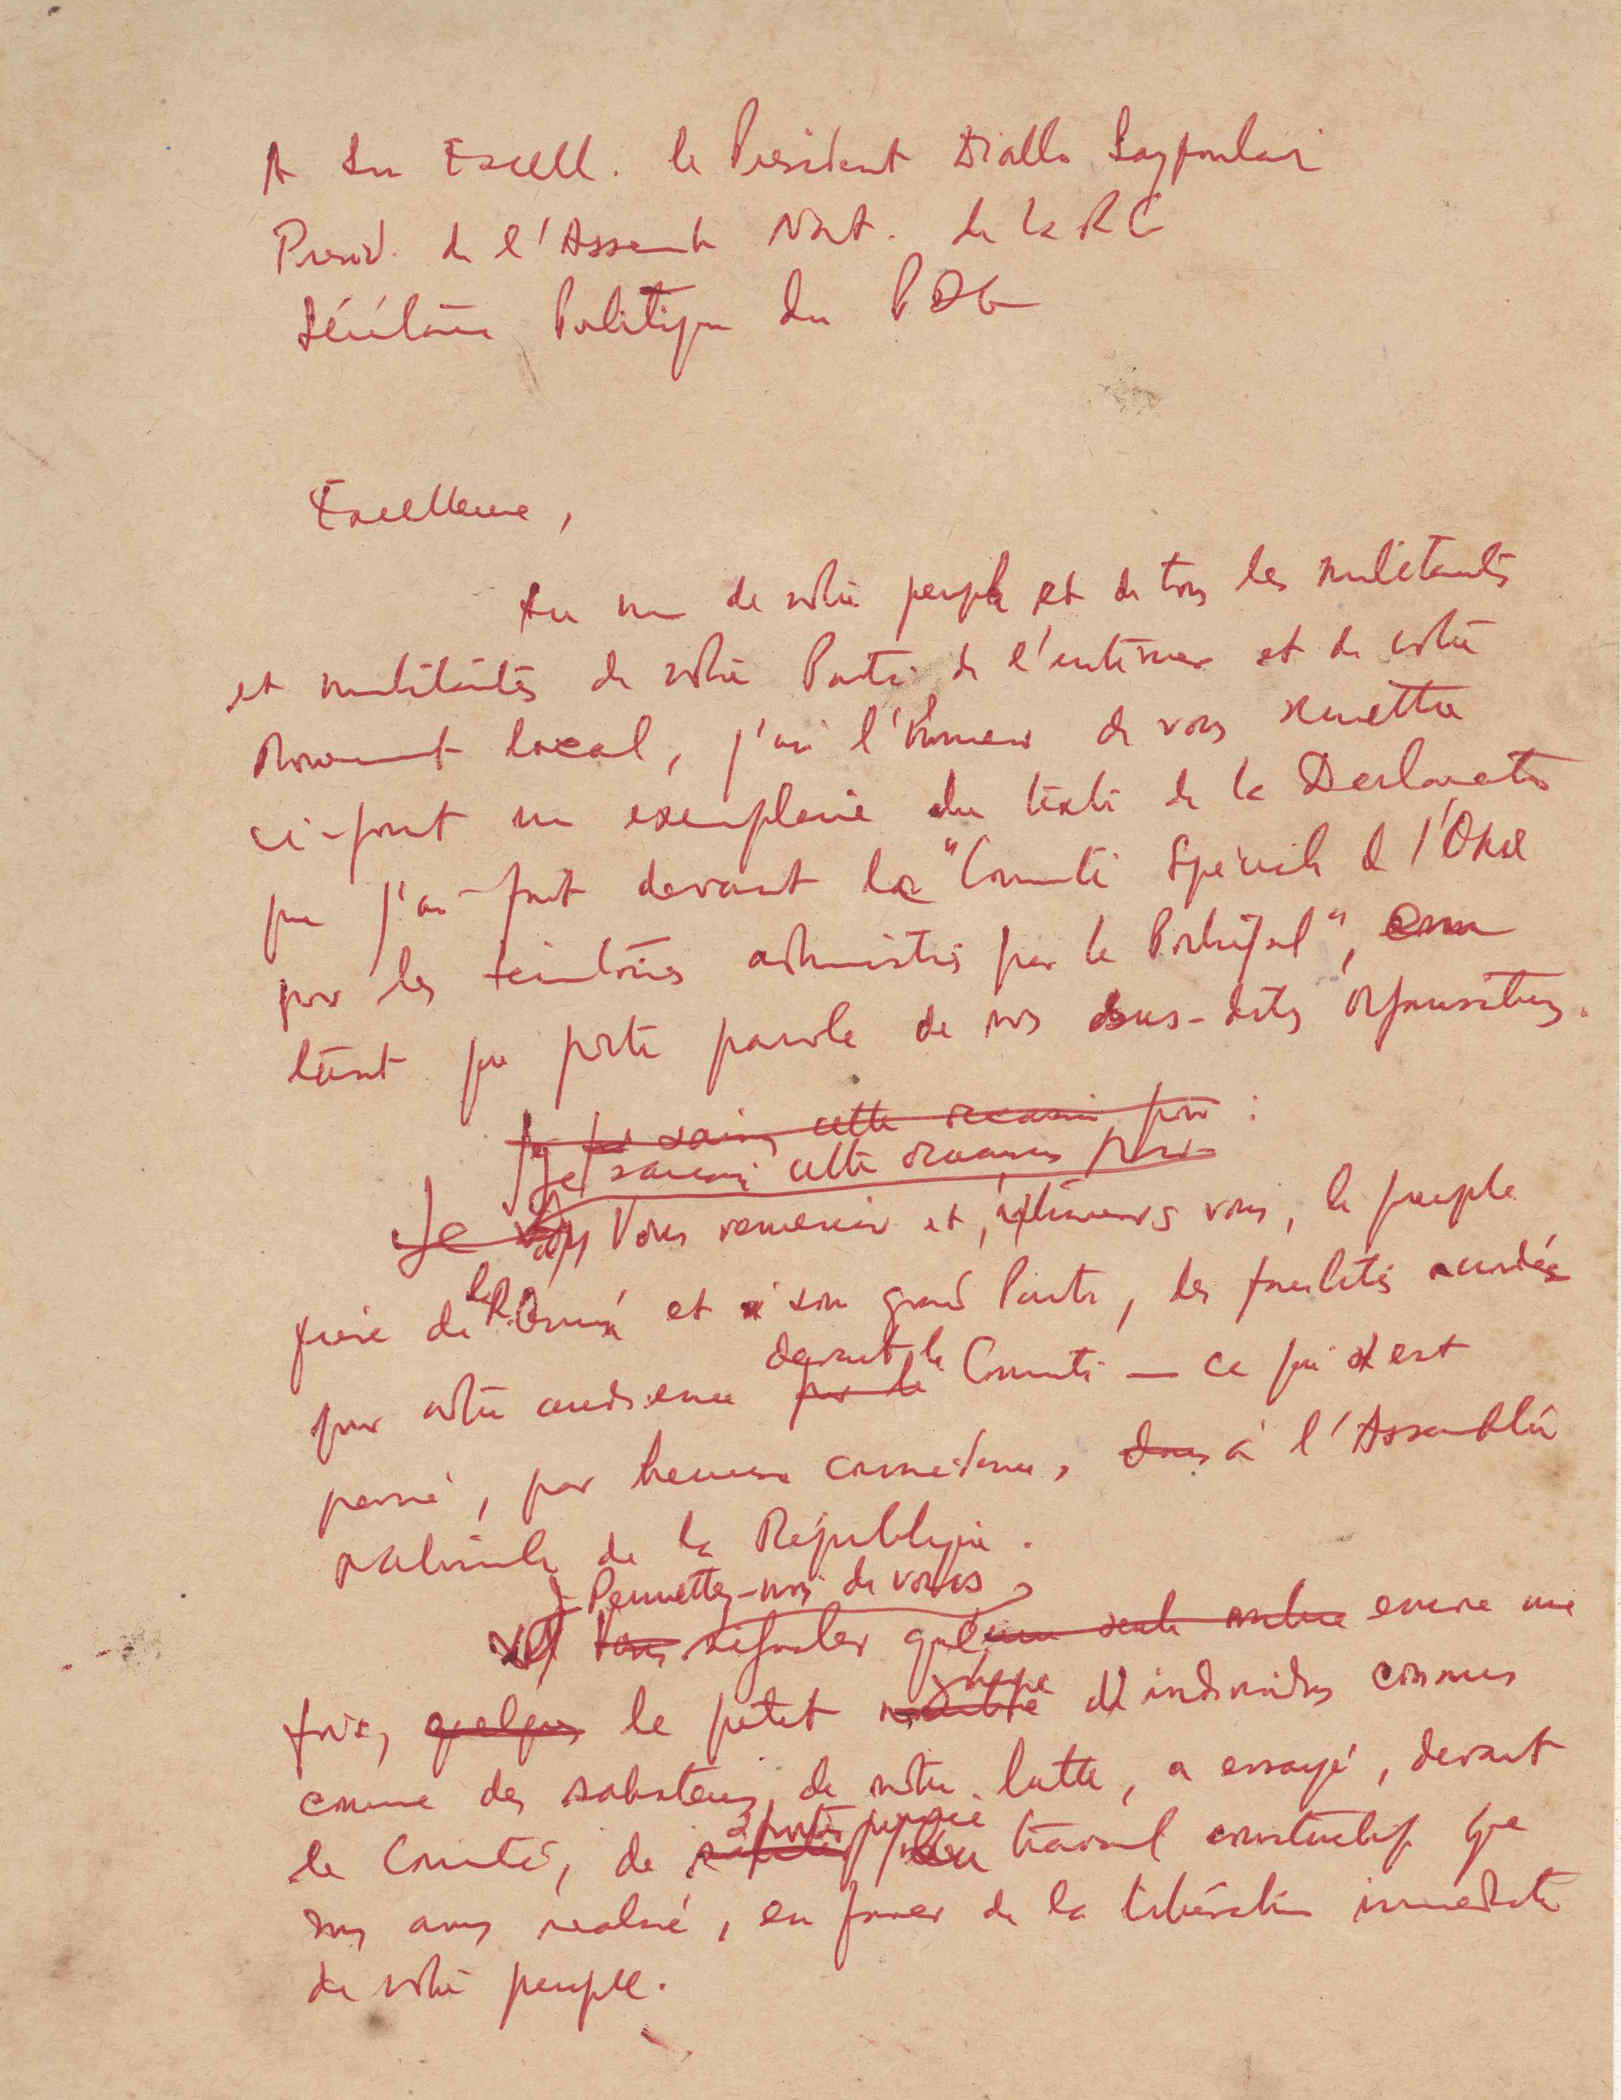 A Son Excell. le Président Diallo Sayfoulaï
Présid. de l'Assemb Nat. de la RG
Sécrétaire Politique du PDG
Excellence,
Au nom de notre peuple et de tous les militants
et militants de notre Parti de l'intérieur et de notre
Mouvement local, j'ai l'honneur de vous remettre
ci-joint un exemplaire du texte de la Déclaration
que j'ai fait devant le "Comité Spécial de l'ONU
pour les territoires administrés par le Portugal", en
tant que porte parole de nos sus-dites organisations.
Je saisis cette occasion pour :
Je saisis cette occasion pour
Je vous remercier et, à travers vous, le peuple
frère de la R. Guiné et son grand Parti, des facilités accordées
devant le
pour notre audience par le Comité — ce qui s'est
passé, par heureuse coincidence, dans à l'Assemblée
nationale de la République.
Permettez-moi de vous
vous signaler que une seule ombre encore une
groupe
fois, quelques le petit nombre d'individus connus
comme des saboteurs de notre lutte, a essayé, devant
à porter
le Comité, de saboter travail constructif que
nous avons réalisé, en faveur de la libération immédiate
de notre peuple.